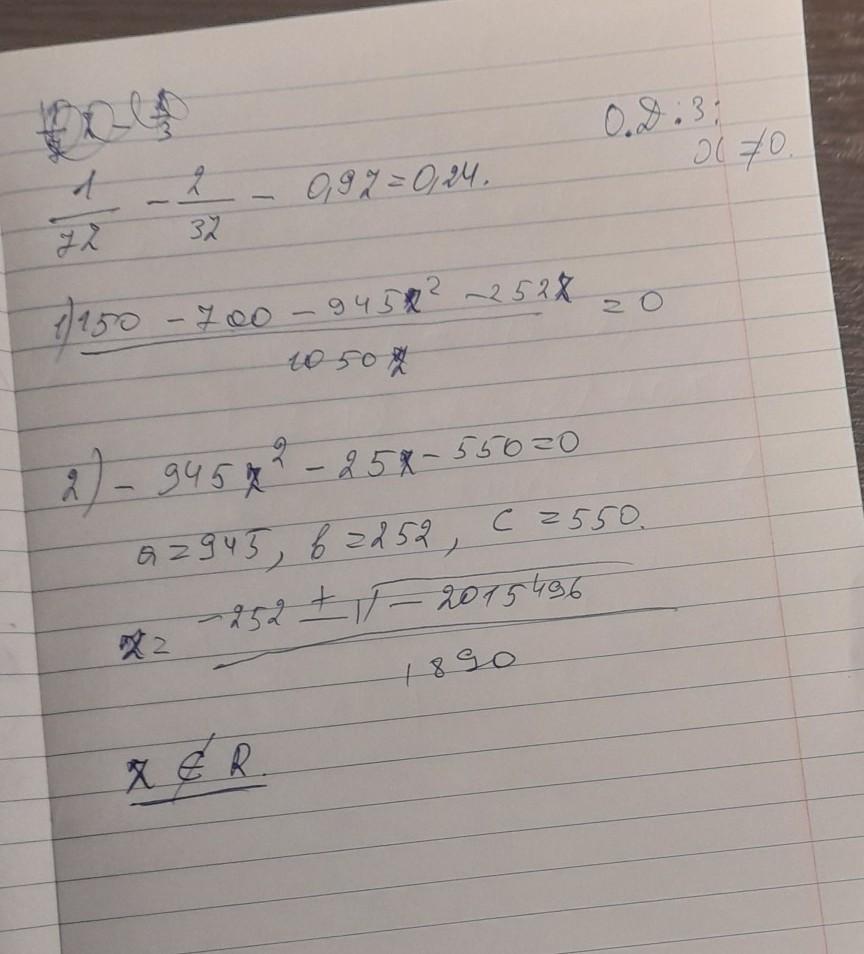 О.Д.З:
x ≠ 0.
1/7z - 2/3z - 0,9z = 0,24.
1) 150 - 700 - 945z² - 252z / 1050z = 0
2) - 945z² - 25z - 550 = 0
a = 945, b = 252, c = 550.
z = -252 ± √-2015496 / 1890
z ∉ R.